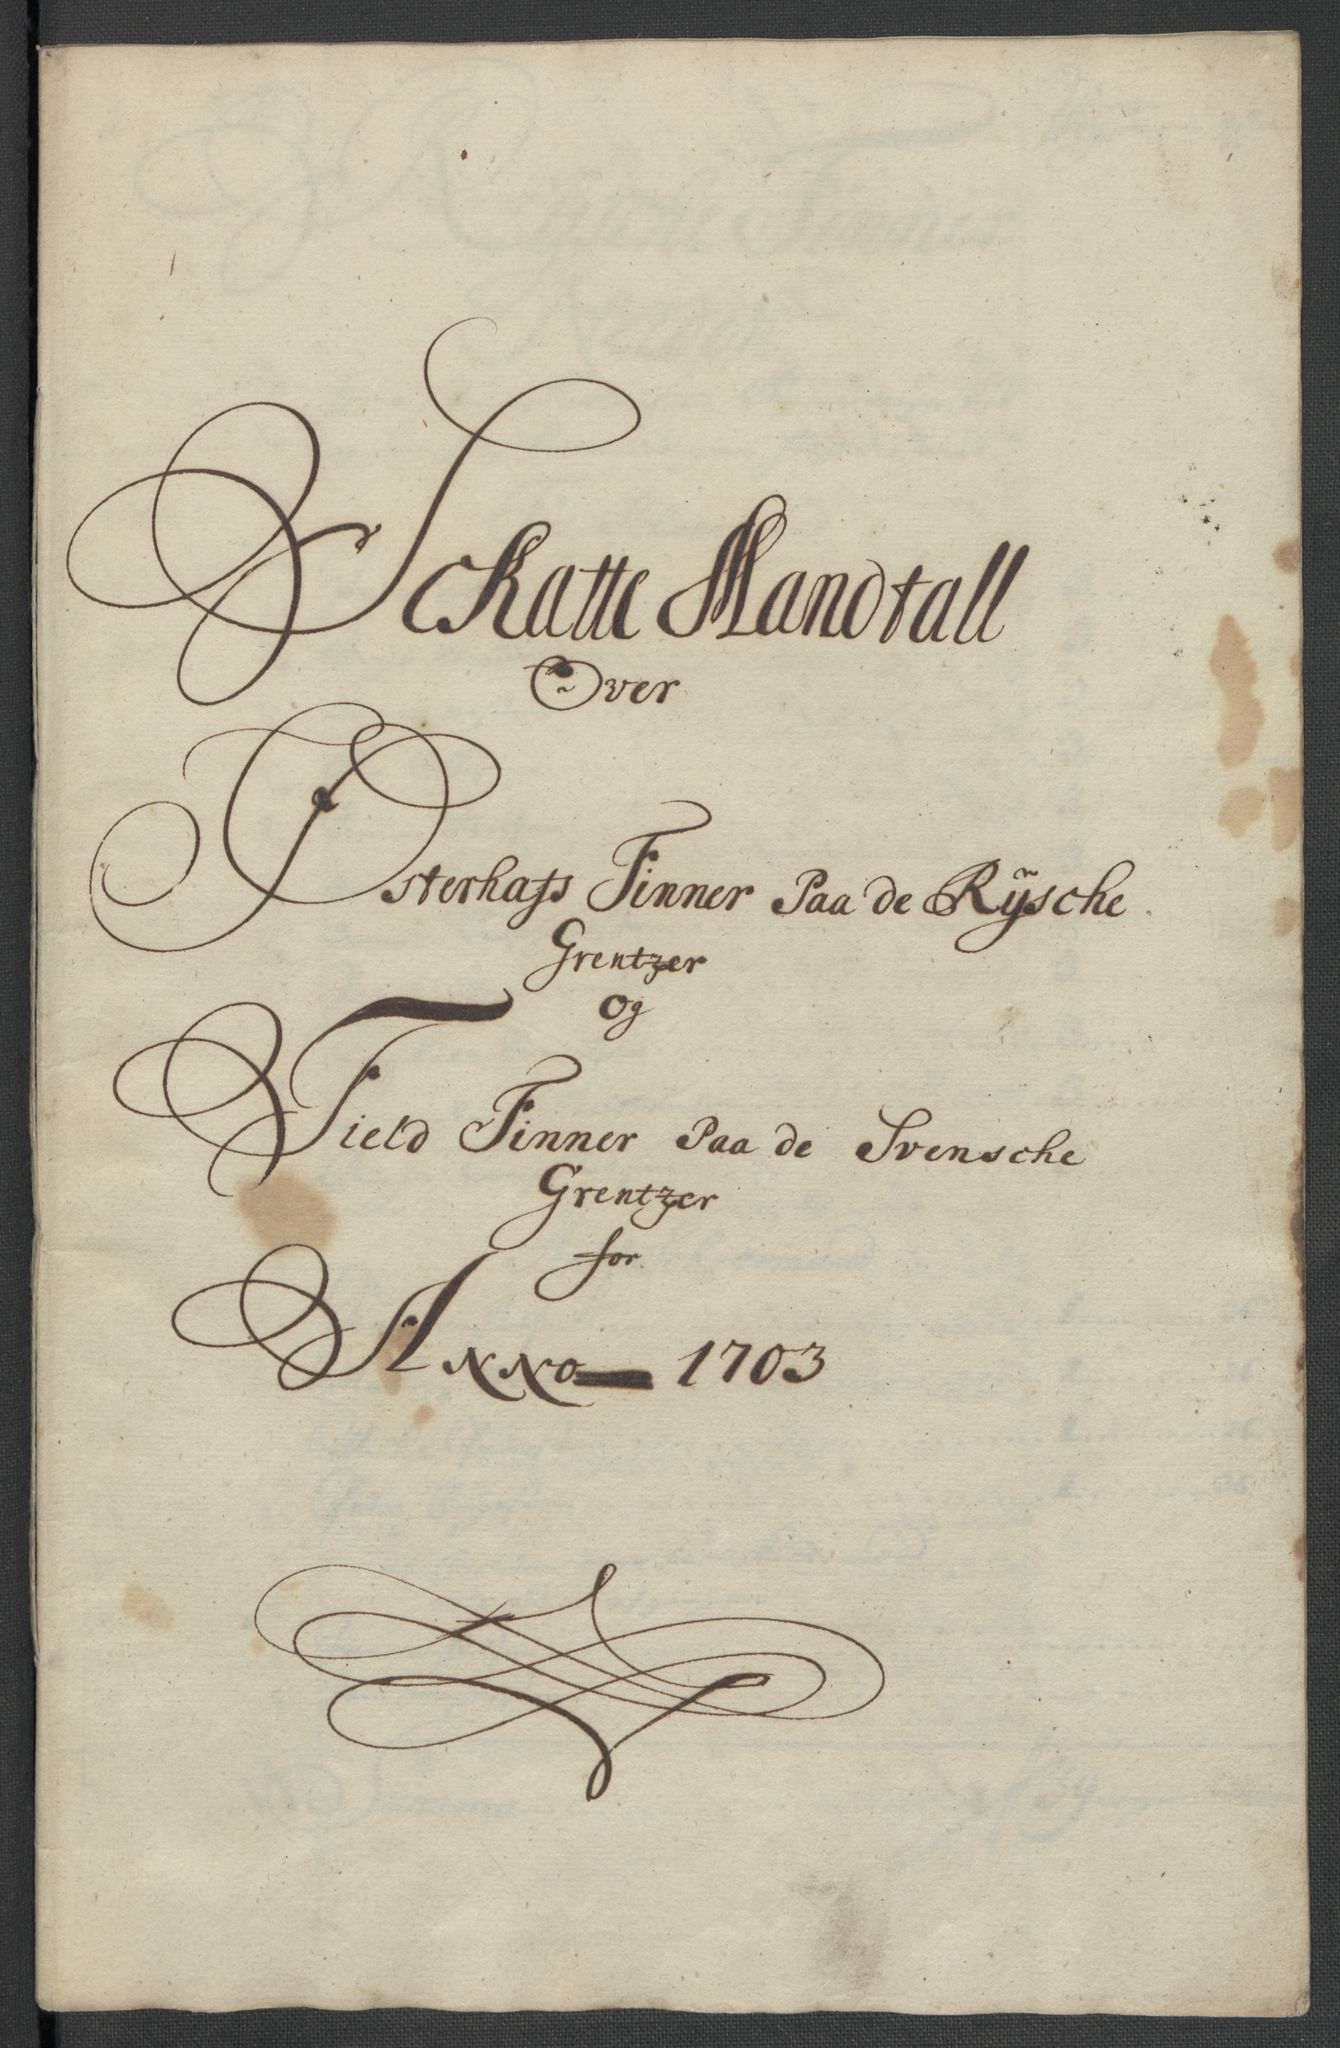 Sckatte Mandtall
Over
Østerhafs Finner Paa de Rÿsche
Grentzer
Og
Field Finner Paa de Svensche
Grentzer
for
Anno 1703